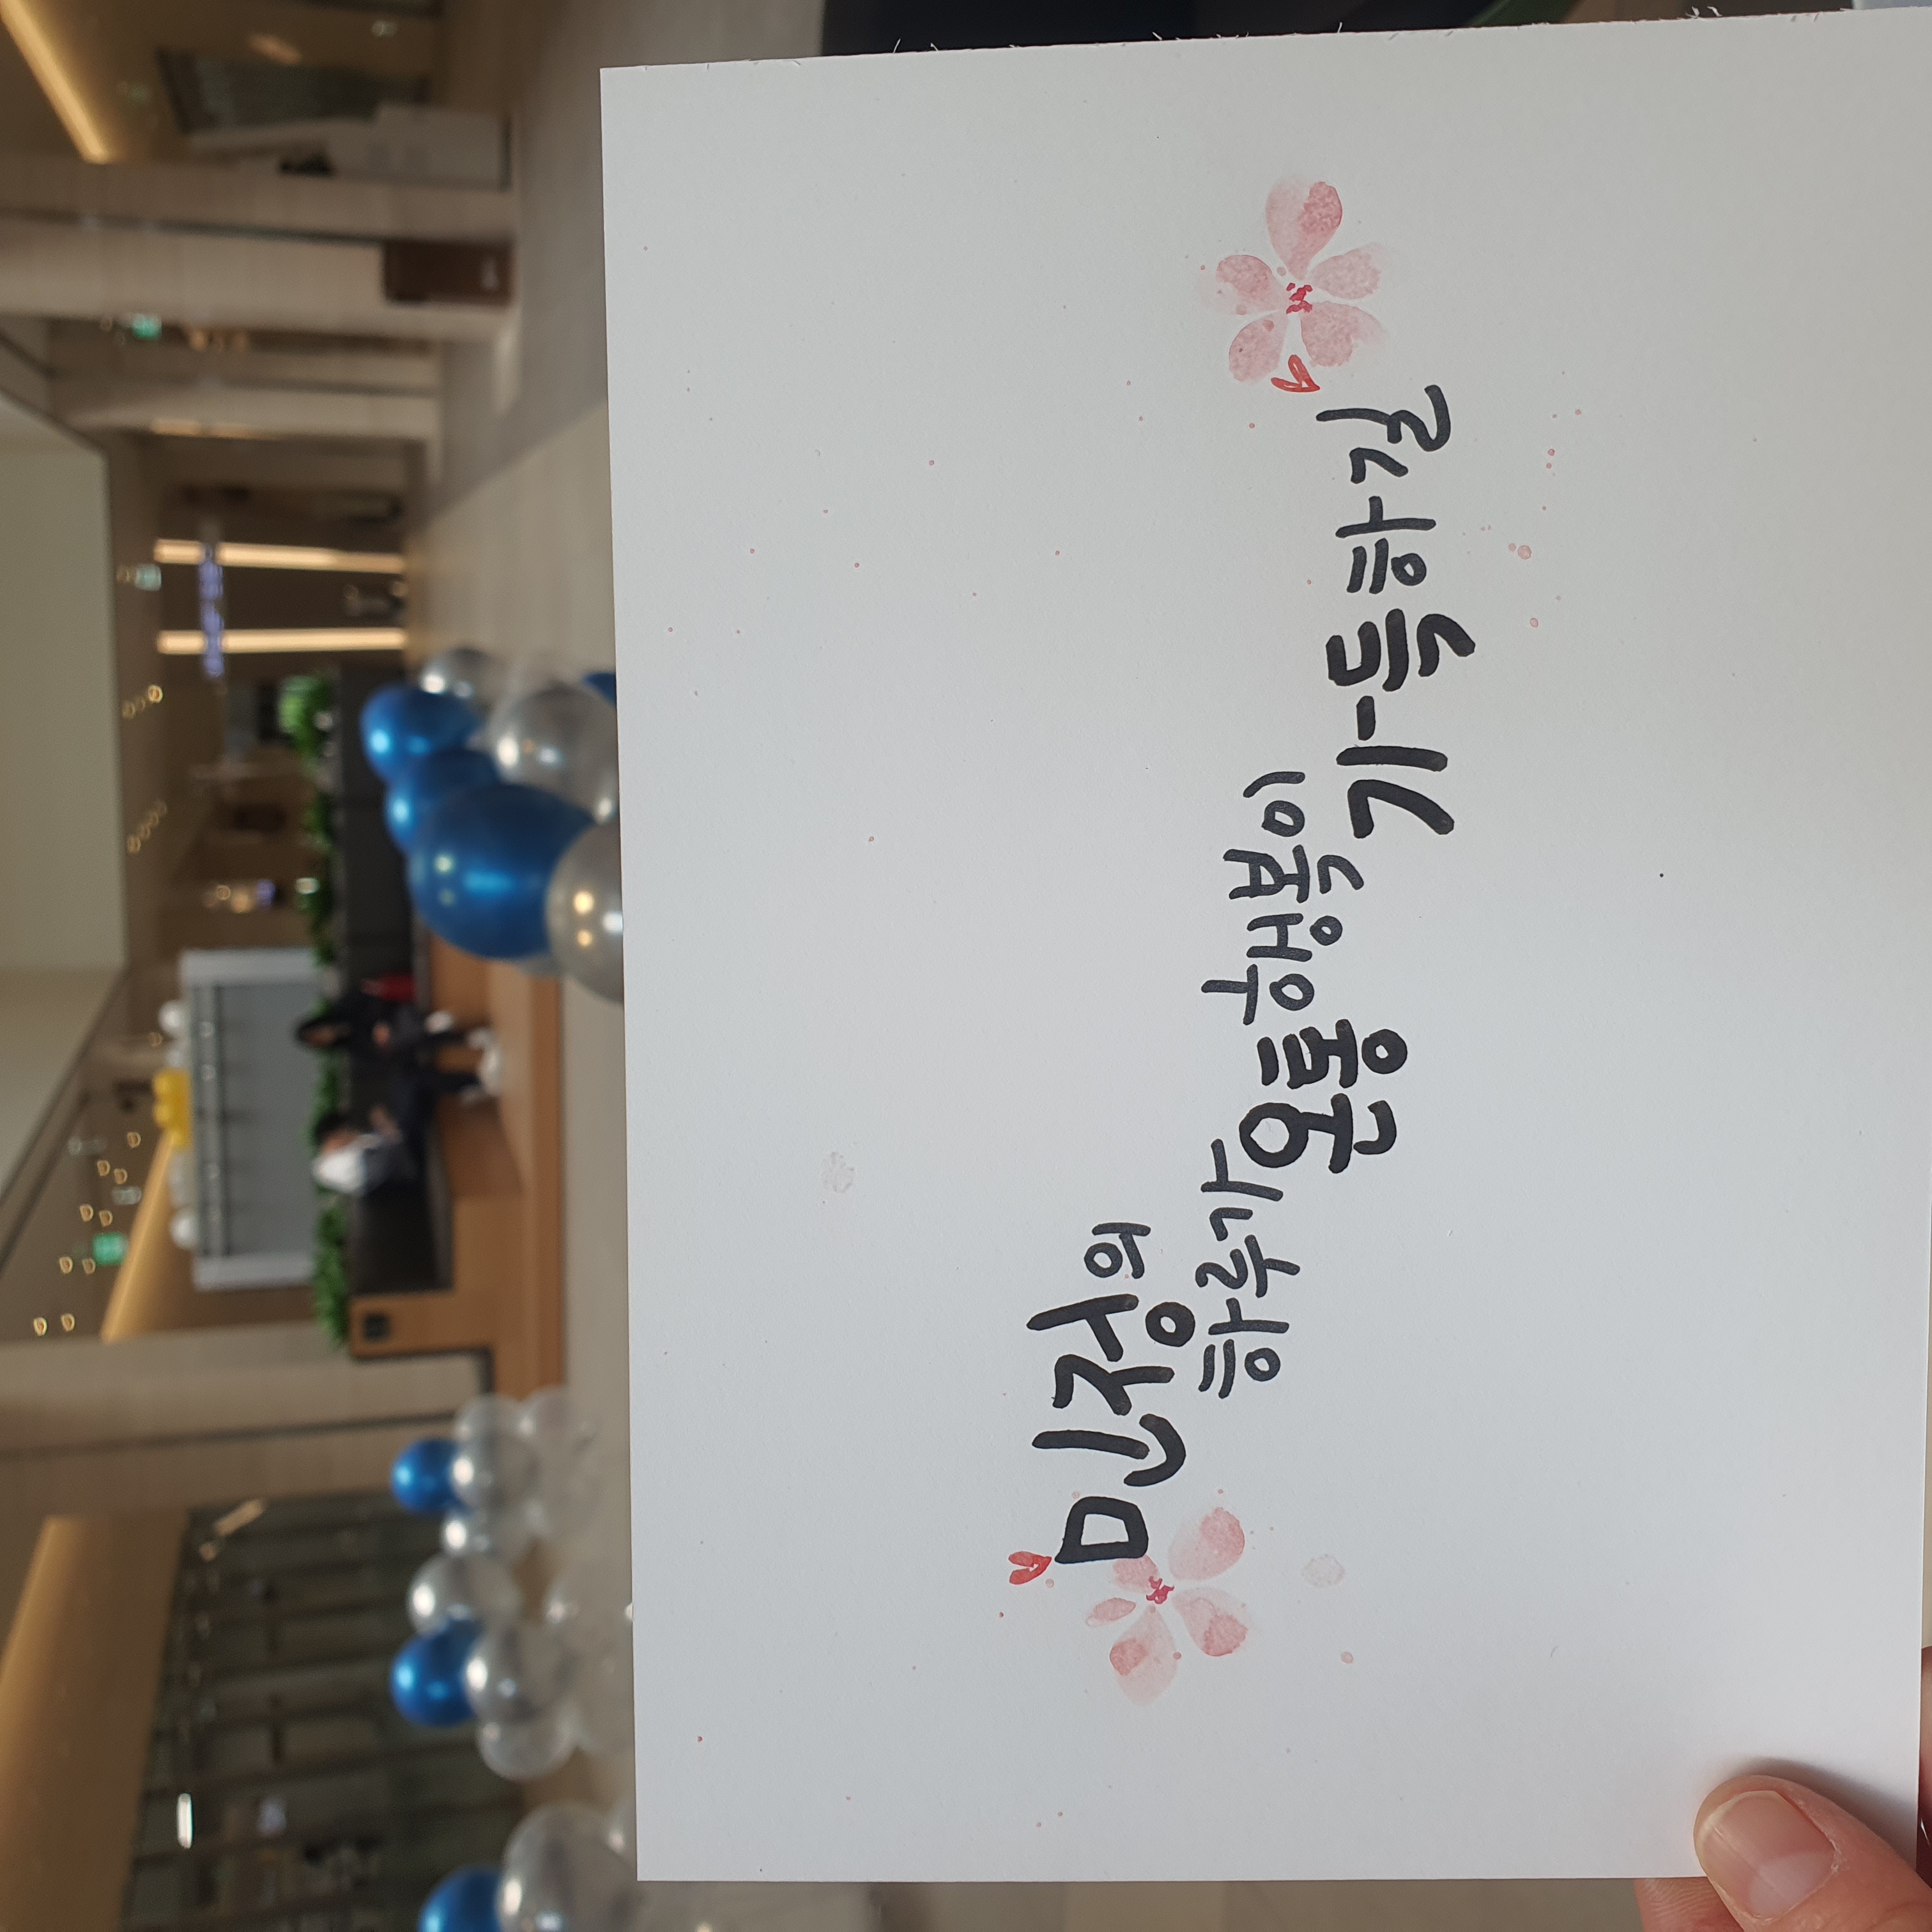 민정의
하루가 온통 행복이
가득하길